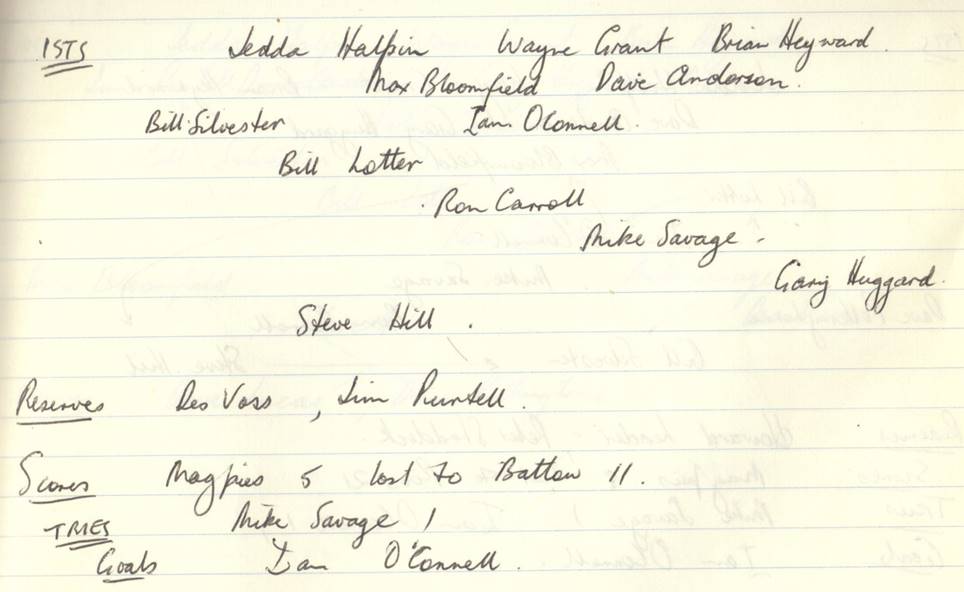 1STS Jedda Halpin Wayne Grant Brian Heyward.
Max Bloomfield Dave Anderson.
Bill Silvester Ian O'Connell.
Bill Lotter
Ron Carroll
Mike Savage.
Gary Huggard.
Steve Hill.
Reserves Des Voss, Jim Purtell.
Scores Magpies 5 lost to Batlow 11.
TRIES Mike Savage 1
Goals Ian O'Connell.